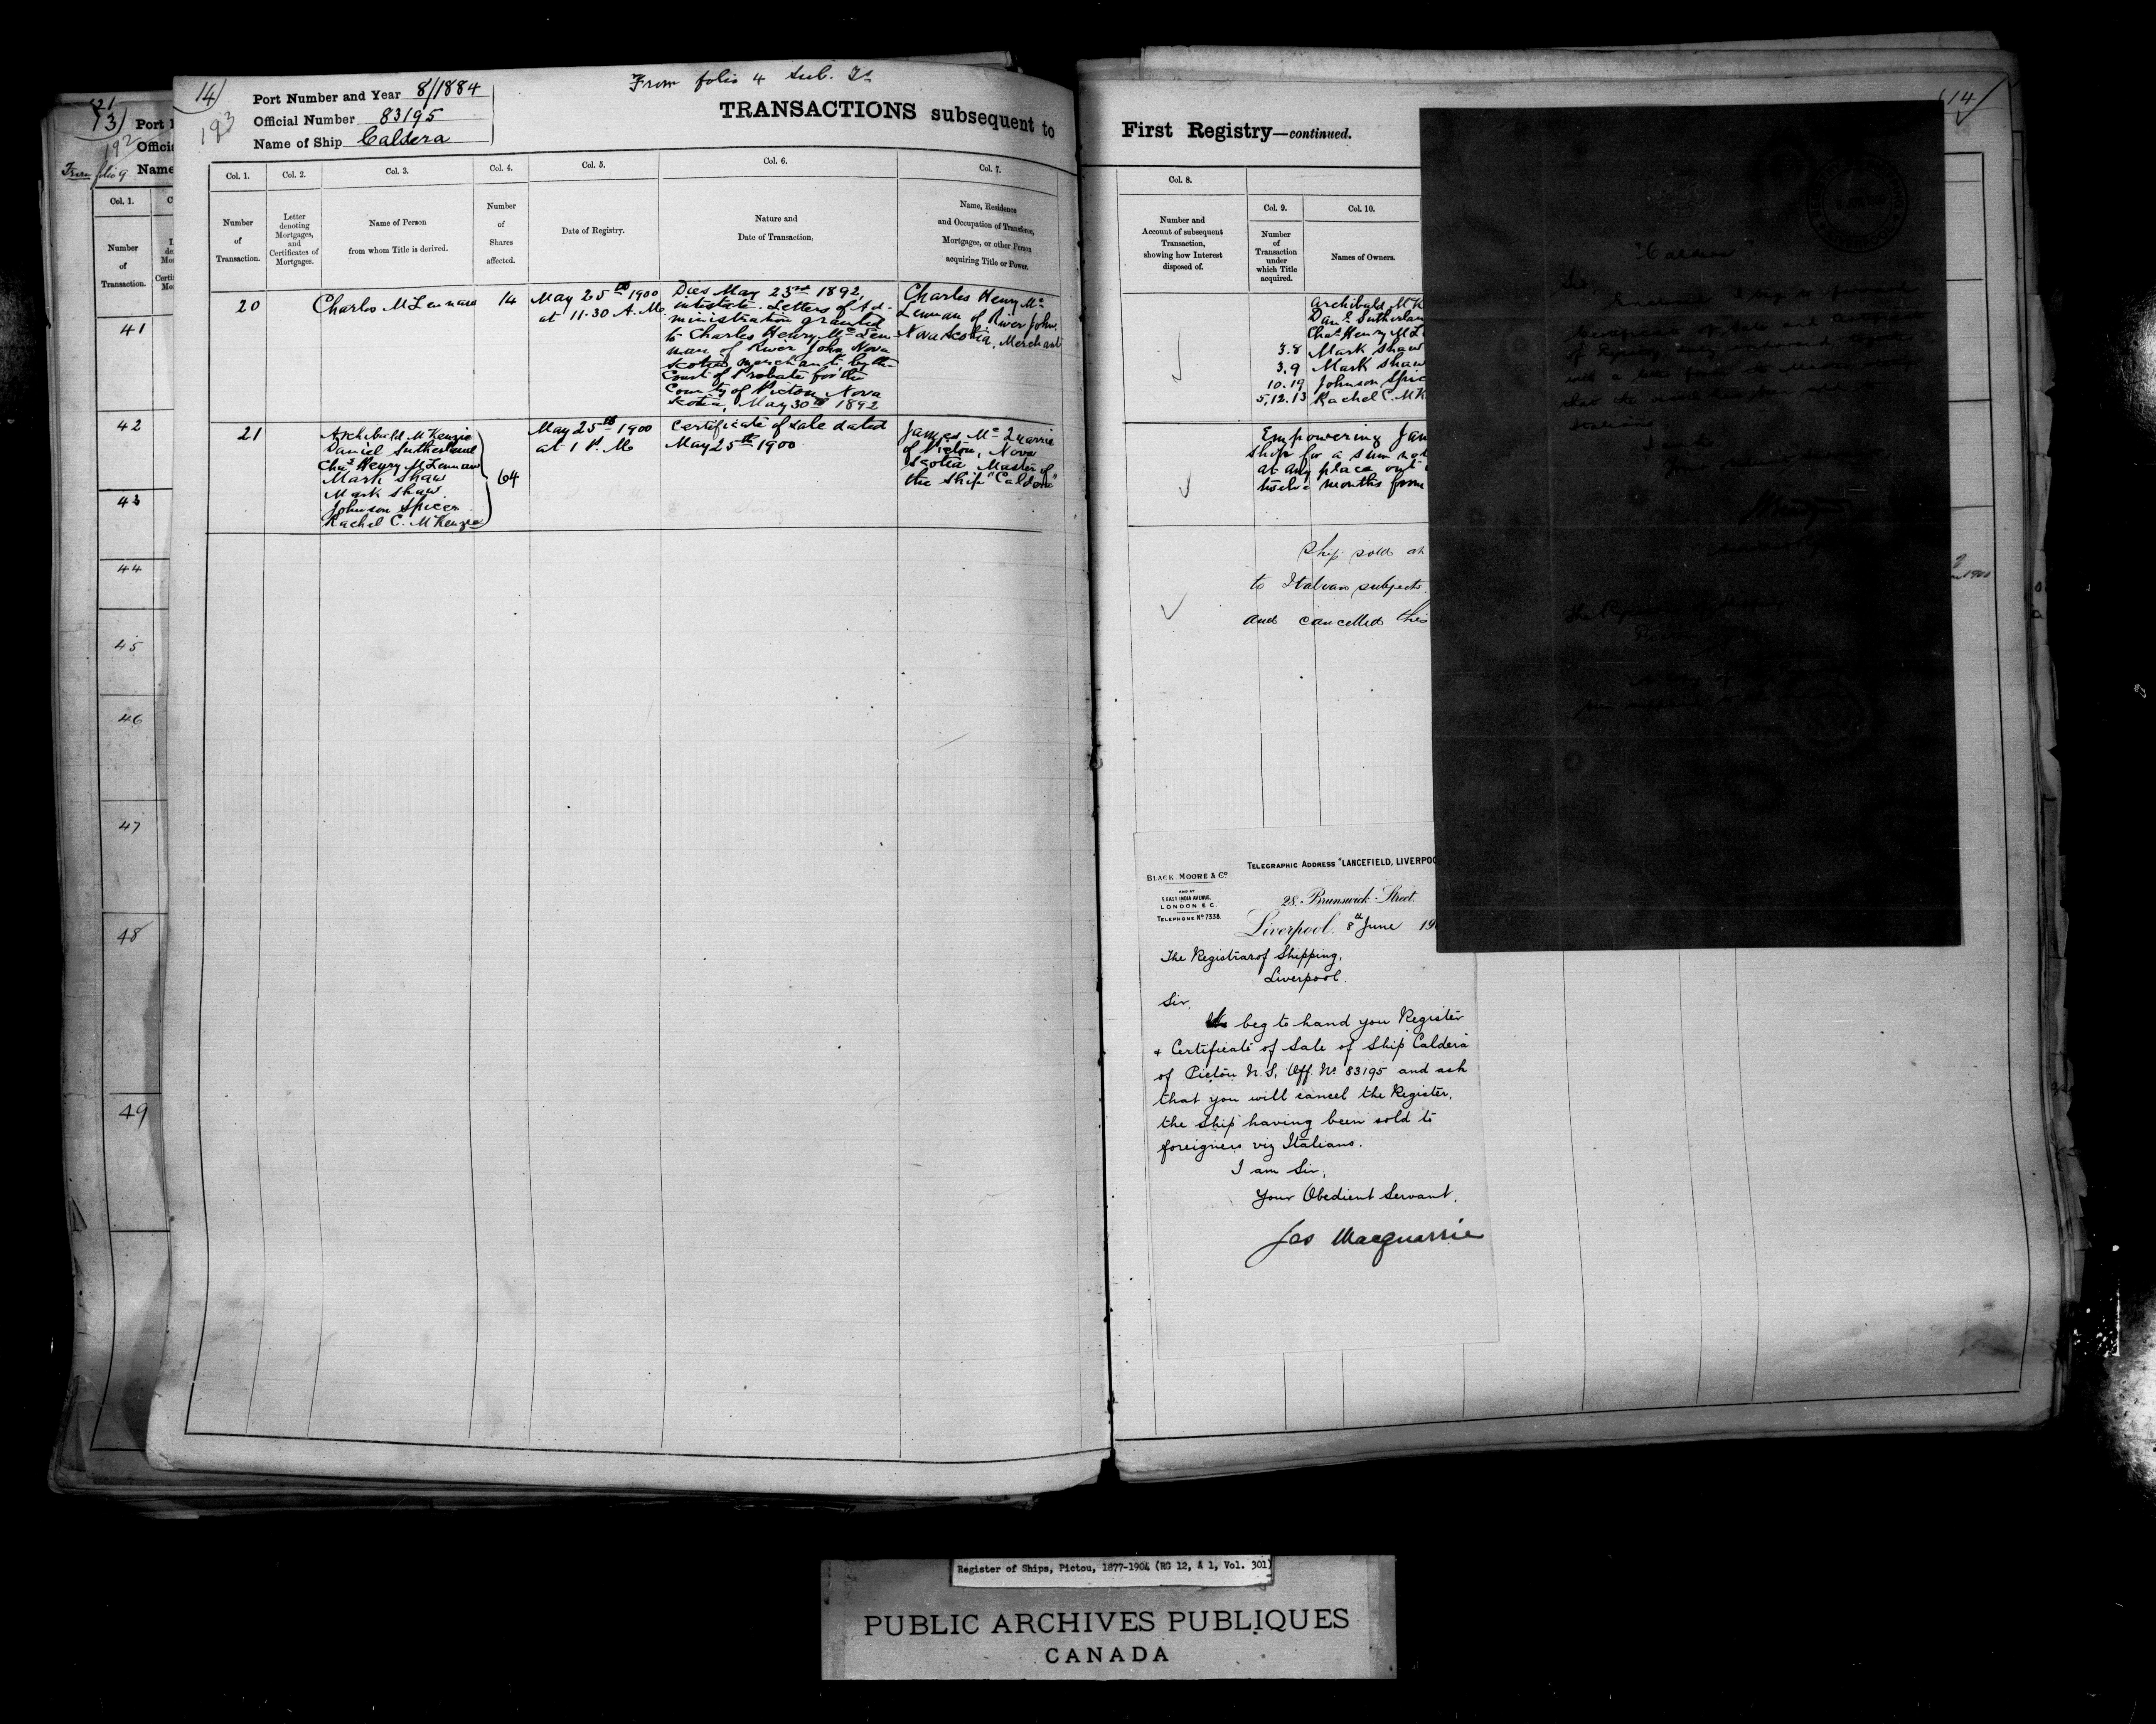 14)
193
Port Number and Year 8/1884
Official Number 83195
Name of Ship Caldera
From folio 4 Sub.
TRANSACTIONS subsequent to
Col. 1.
Col. 2.
Col. 3.
Col. 4.
Col. 5.
Col. 6.
Col. 7.
Number
of
Transaction.
Letter
denoting
Mortgages,
and
Certificates of
Mortgages.
Name of Person
from whom Title is derived.
Number
of
Shares
affected.
Date of Registry.
Nature and
Date of Transaction.
Name, Residence
and Occupation of Transferee,
Mortgagee, or other Person
acquiring Title or Power.
20
Charles McLennan
14
May 25th 1900
at 11.30 A. M.
Dies May 23rd 1892,
intestate. Letters of Ad-
ministration granted
to Charles Henry McLen-
nan of River John Nova
Scotia, merchant, by the
Court of Probate for the
County of Pictou, Nova
Scotia, May 30th 1892
Charles Henry Mc
Lennan of River John,
Nova Scotia, Merchant
21
Archibald McKenzie
Daniel Sutherland
Chas Henry McLennan
Mark Shaw
Mark Shaw
Johnson Spicer
Rachel C. McKenzie
64
May 25th 1900
at 1 P. M.
Certificate of Sale dated
May 25th 1900
James McQuarrie
of Pictou, Nova
Scotia Master of
the ship "Caldera"
13)
21
192
Port
Offici
Name
From folio 9
Col. 1.
Number
of
Transaction.
41
42
43
44
45
46
47
48
49
First Registry—continued.
14
Col. 8.
Col. 9.
Col. 10.
Number and
Account of subsequent
Transaction,
showing how Interest
disposed of.
Number
of
Transaction
under
which Title
acquired.
Names of Owners.
Archibald McK
Danl Sutherlan
Chas Henry McL
3.8 Mark Shaw
3.9 Mark Shaw
10.19 Johnson Spic
5,12.13 Rachel C. McK
Empowering Jam
Ship for a sum not
at any place out
twelve months from
Ship sold at
to Italian subjects.
and cancelled this
"Caldera"
Sir,
Telegraphic Address "LANCEFIELD, LIVERPOO
BLACK, MOORE & Co
AND AT
5 EAST INDIA AVENUE,
LONDON E C
TELEPHONE No 7338
28. Brunswick Street.
Liverpool. 8th June 19
The Registrar of Shipping,
Liverpool.
Sir,
beg to hand you Register
& Certificate of Sale of Ship Caldera
of Pictou N.S, Off. No 83195 and ask
that you will cancel the Register,
the ship having been sold to
foreigners viz Italians.
I am Sir,
Your Obedient Servant,
Jas Macquarrie
Register of Ships, Pictou, 1877-1904 (RG 12, A 1, Vol. 301)
PUBLIC ARCHIVES PUBLIQUES
CANADA